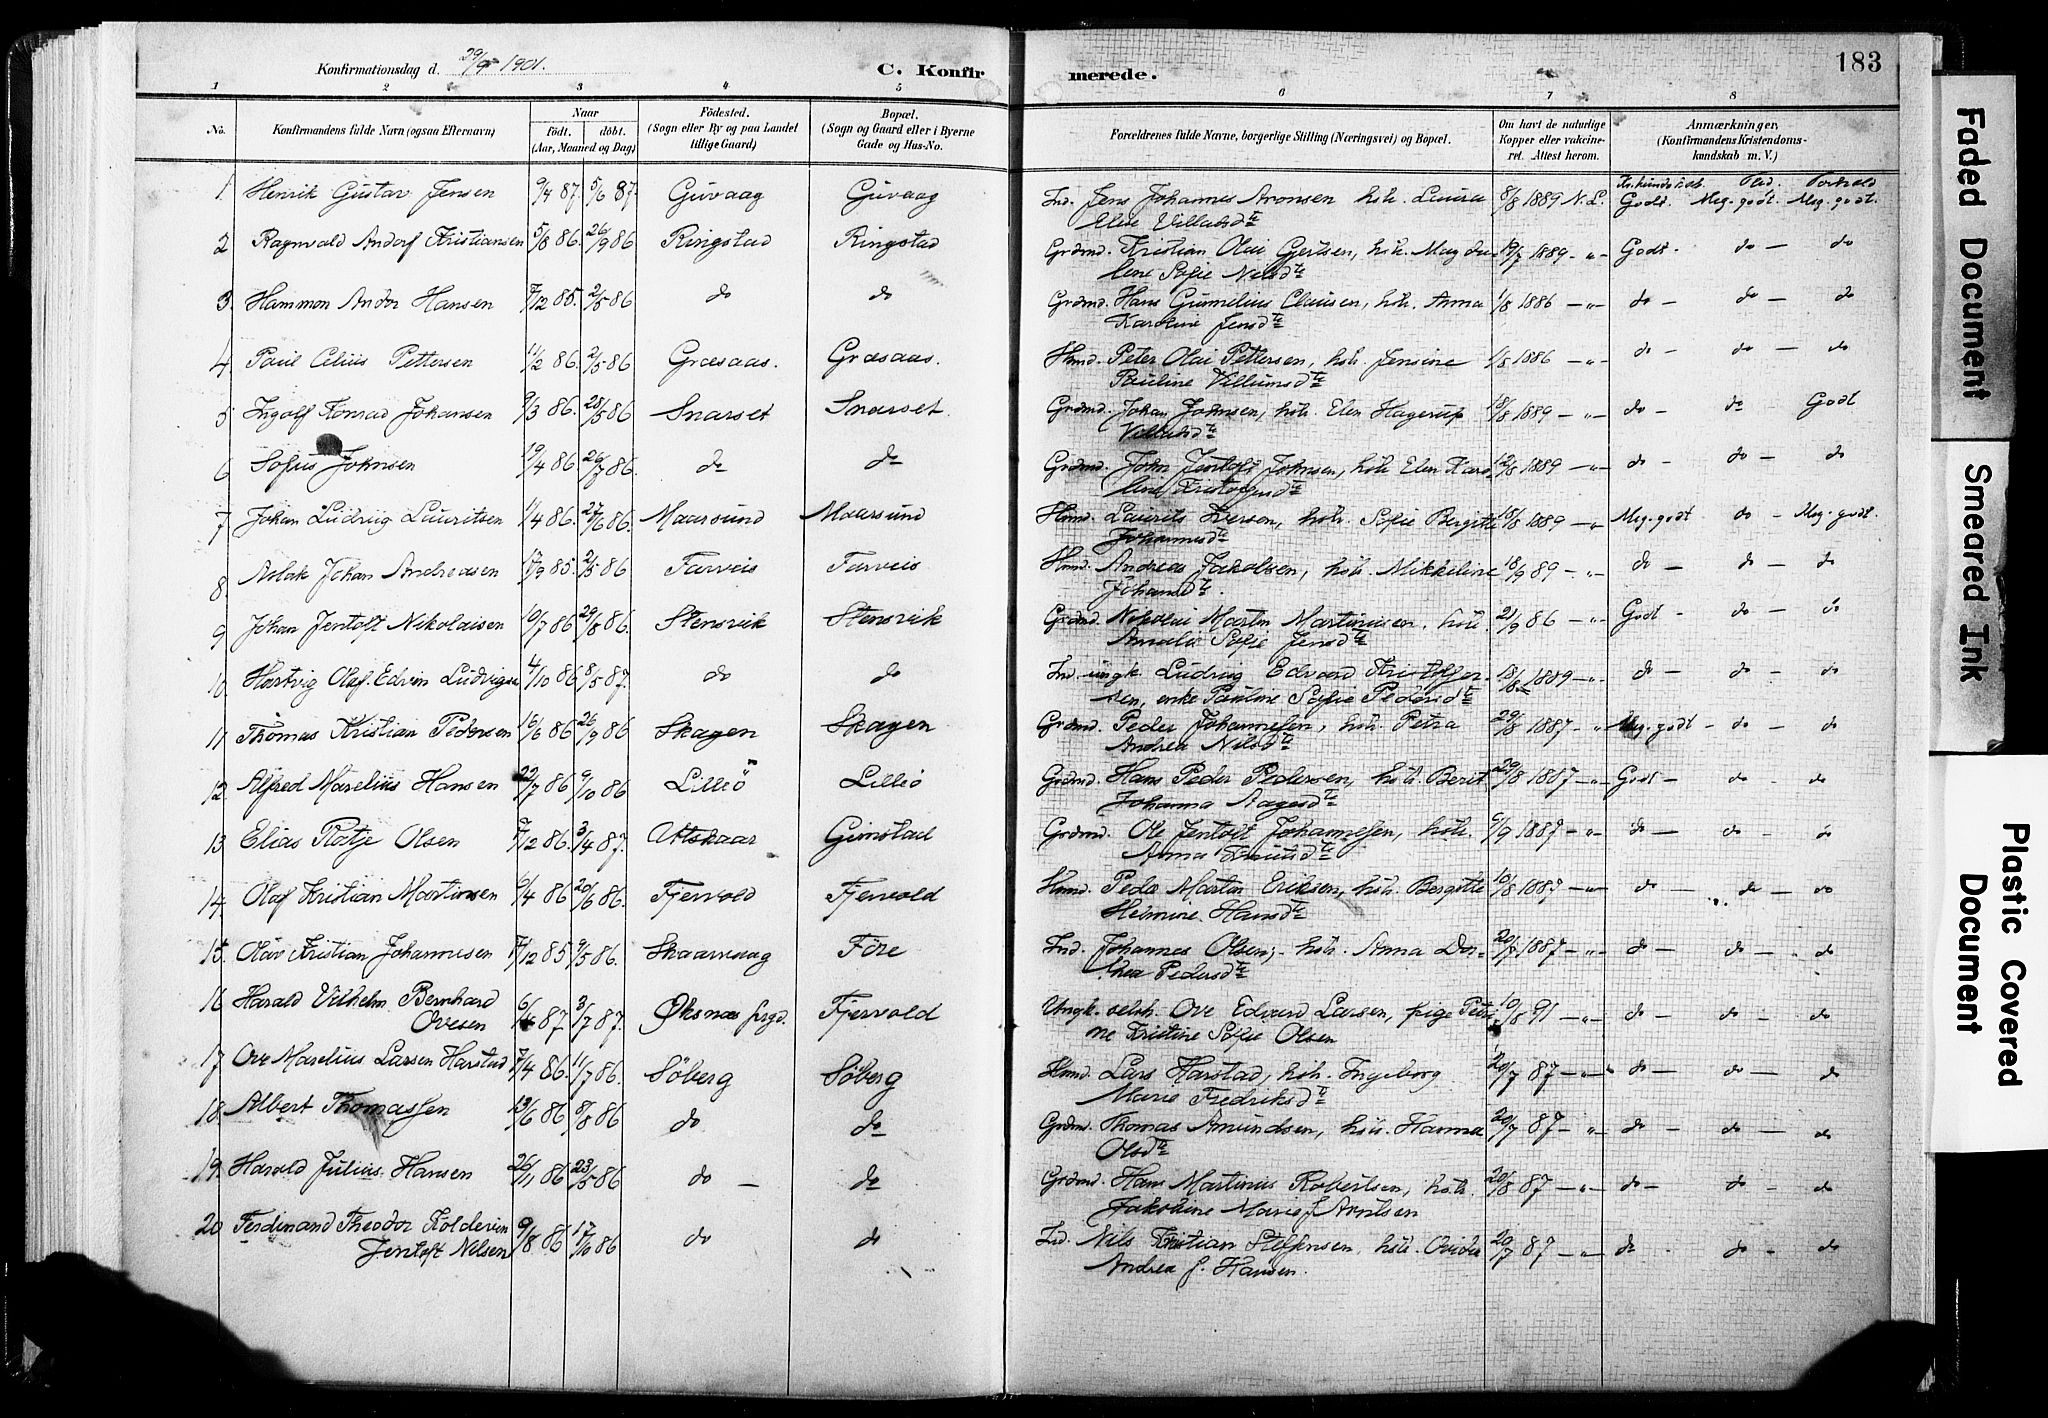 183
Konfirmationsdag d. 29/9 1901.
C. Konfirmerede.
1 2 3 4 5 6 7 8
No.
Konfirmandens fulde Navn (ogsaa Efternavn)
Naar
födt. döbt.
(Aar, Maaned og Dag)
Födested.
(Sogn eller By og paa Landet
tillige Gaard)
Bopæl.
(Sogn og Gaard eller i Byerne
Gade og Hus-No.
Forældrenes fulde Navne, borgerlige Stilling (Næringsvei) og Bopæl.
Om havt de naturlige
Kopper eller vakcine-
ret. Attest herom.
Anmærkninger,
(Konfirmandens Kristendoms-
kundskab m. V.)
1 Henrik Gustav Jensen 9/4 87. 5/6 87. Guvaag Guvaag Ind. Jens Johannes Aronsen hstr. Laura 8/8 1889 N.L. Godt. Meg. godt. Meg. godt.
2 Ragnvald Andorf Kristiansen 5/8 86. 26/9 86 Ringstad Ringstad Grdmd. Kristian Olai Gertsen, hstr. Magda- 19/7 1889 -"- Godt - do - do
lene Sofie Nilsdtr
3. Hammon Andor Hansen 7/12 85. 2/5 86 do do Grdmd. Hans Gumelius Clausen, hstr. Anna 1/8 1886 -"- do - do - do
Karoline Jensdtr
4 Paul Celius Pettersen 11/2 86. 2/5 86 Græsaas. Græsaas. Hmd. Peter Olai Pettersen, hstr. Jensine 1/8 1886 -"- do - do - do
Pauline Villumsdtr
5 Ingolf Konrad Johansen 9/3 86. 28/5 86 Snarset Snarset. Grdmd. Johan Johnsen, hstr. Elen Hagerup 18/8 1889 -"- do - do Godt
6 Sofus Johnsen 19/4 86. 26/7 86. do do Grdmd. John Jentoft Johnsen, hstr. Elen Karo- 12/8 1889 -"- do - do - do
line Kristofersdtr
7 Johan Ludvig Lauritsen 1/4 86. 27/6 86. Maarsund Maarsund Hmd. Laurits Iversen, hstr. Sofie Bergitte 18/8 1889 -"- Meg. godt do - Meg. godt.
Johannesdtr
8. Aslak Johan Andreasen 17/9 85. 2/5 86 Farveis Farveis Hmd. Andreas Jakobsen, hstr. Mikkeline 18/9 89 -"- do - do - do
Johansdtr.
9 Johan Jentoft Nikolaisen 10/7 86 29/8 86. Stensvik Stensvik Grdmd. Nikolai Martin Martinusen, hstr. 21/9 86 -"- Godt - do - do
Amalie Sofie Jensdtr
10 Hartvig Olaf Edvin Ludvigsen 4/10 86 8/5 87. do do Ind. ungk. Ludvig Edvard Kristoffer- 18/8 1889 -"- do - do - do
sen, enke Pauline Sofie Pedersdtr
11 Thomas Kristian Pedersen 16/6 86 26/9 86 Skagen Skagen Grdmd. Peder Johannesen, hstr. Petra 29/8 1887 " Meg. godt - do - do
Andrea Nilsdtr
12 Alfred Marelius Hansen 22/7 86 9/10 86 Lilleö Lilleö Grdmd. Hans Peder Pedersen, hstr. Berit 29/8 1887 -"- Godt - do - do
Johanna Aagesdtr
13 Elias Rotje Olsen 7/12 86. 3/4 87. Utskaar Gimstad Grdmd. Ole Jentoft Johannesen, hstr. 6/9 1887 -"- do - do - do
14. Olaf Kristian Martinsen 6/4 86 20/6 86. Fjervold Fjervold Hmd. Peder Martin Eriksen, hstr. Bergitte 10/8 1887 -"- do - do - do
Helmine Hansdtr
15. Olav Kristian Johannesen 7/12 85 9/5 86. Skaarvaag Före Ind. Johannes Olsen, hstr. Anna Dor- 20/7 1887 -"- do - do - do
thea Pedersdtr
16 Harald Vilhelm Bernhard 6/1 87 3/7 87. Øksnes prgd. Fjervold Ungk. selvh. Ove Edvard Larsen, pige Petri 10/8 91 -"- do - do - do
Ovesen ne Kristine Sofie Olsen
17 Ove Marelius Larsen Harstad 7/4 86. 11/7 86. Söberg Söberg Hmd. Lars Harstad, hstr. Ingeborg 20/7 87 -"- do - do - do
Marie Fredriksdtr
18. Albert Thomassen 12/6 86 8/8 86 do do Grdmd. Thomas Amundsen, hstr. Hanna 20/7 87 - " - do - do - do
Olsdtr
19. Harald Julius Hansen 26/11 86 23/5 86 do - do Grdmd. Hans Martinus Robertsen, hstr. 20/8 87 -"- do - do - do
Jakobine Marie J. Arntsen
20 Ferdinand Theodor Kolderin 9/8 86 17/10 86 do do Ind. Nils Kristian Steffensen, hstr. Ovidia 20/7 87 -"- do - do - do
Jentoft Nilsen Andrea J. Hansen.
Faded Document
Smeared Ink
Plastic Covered
Document